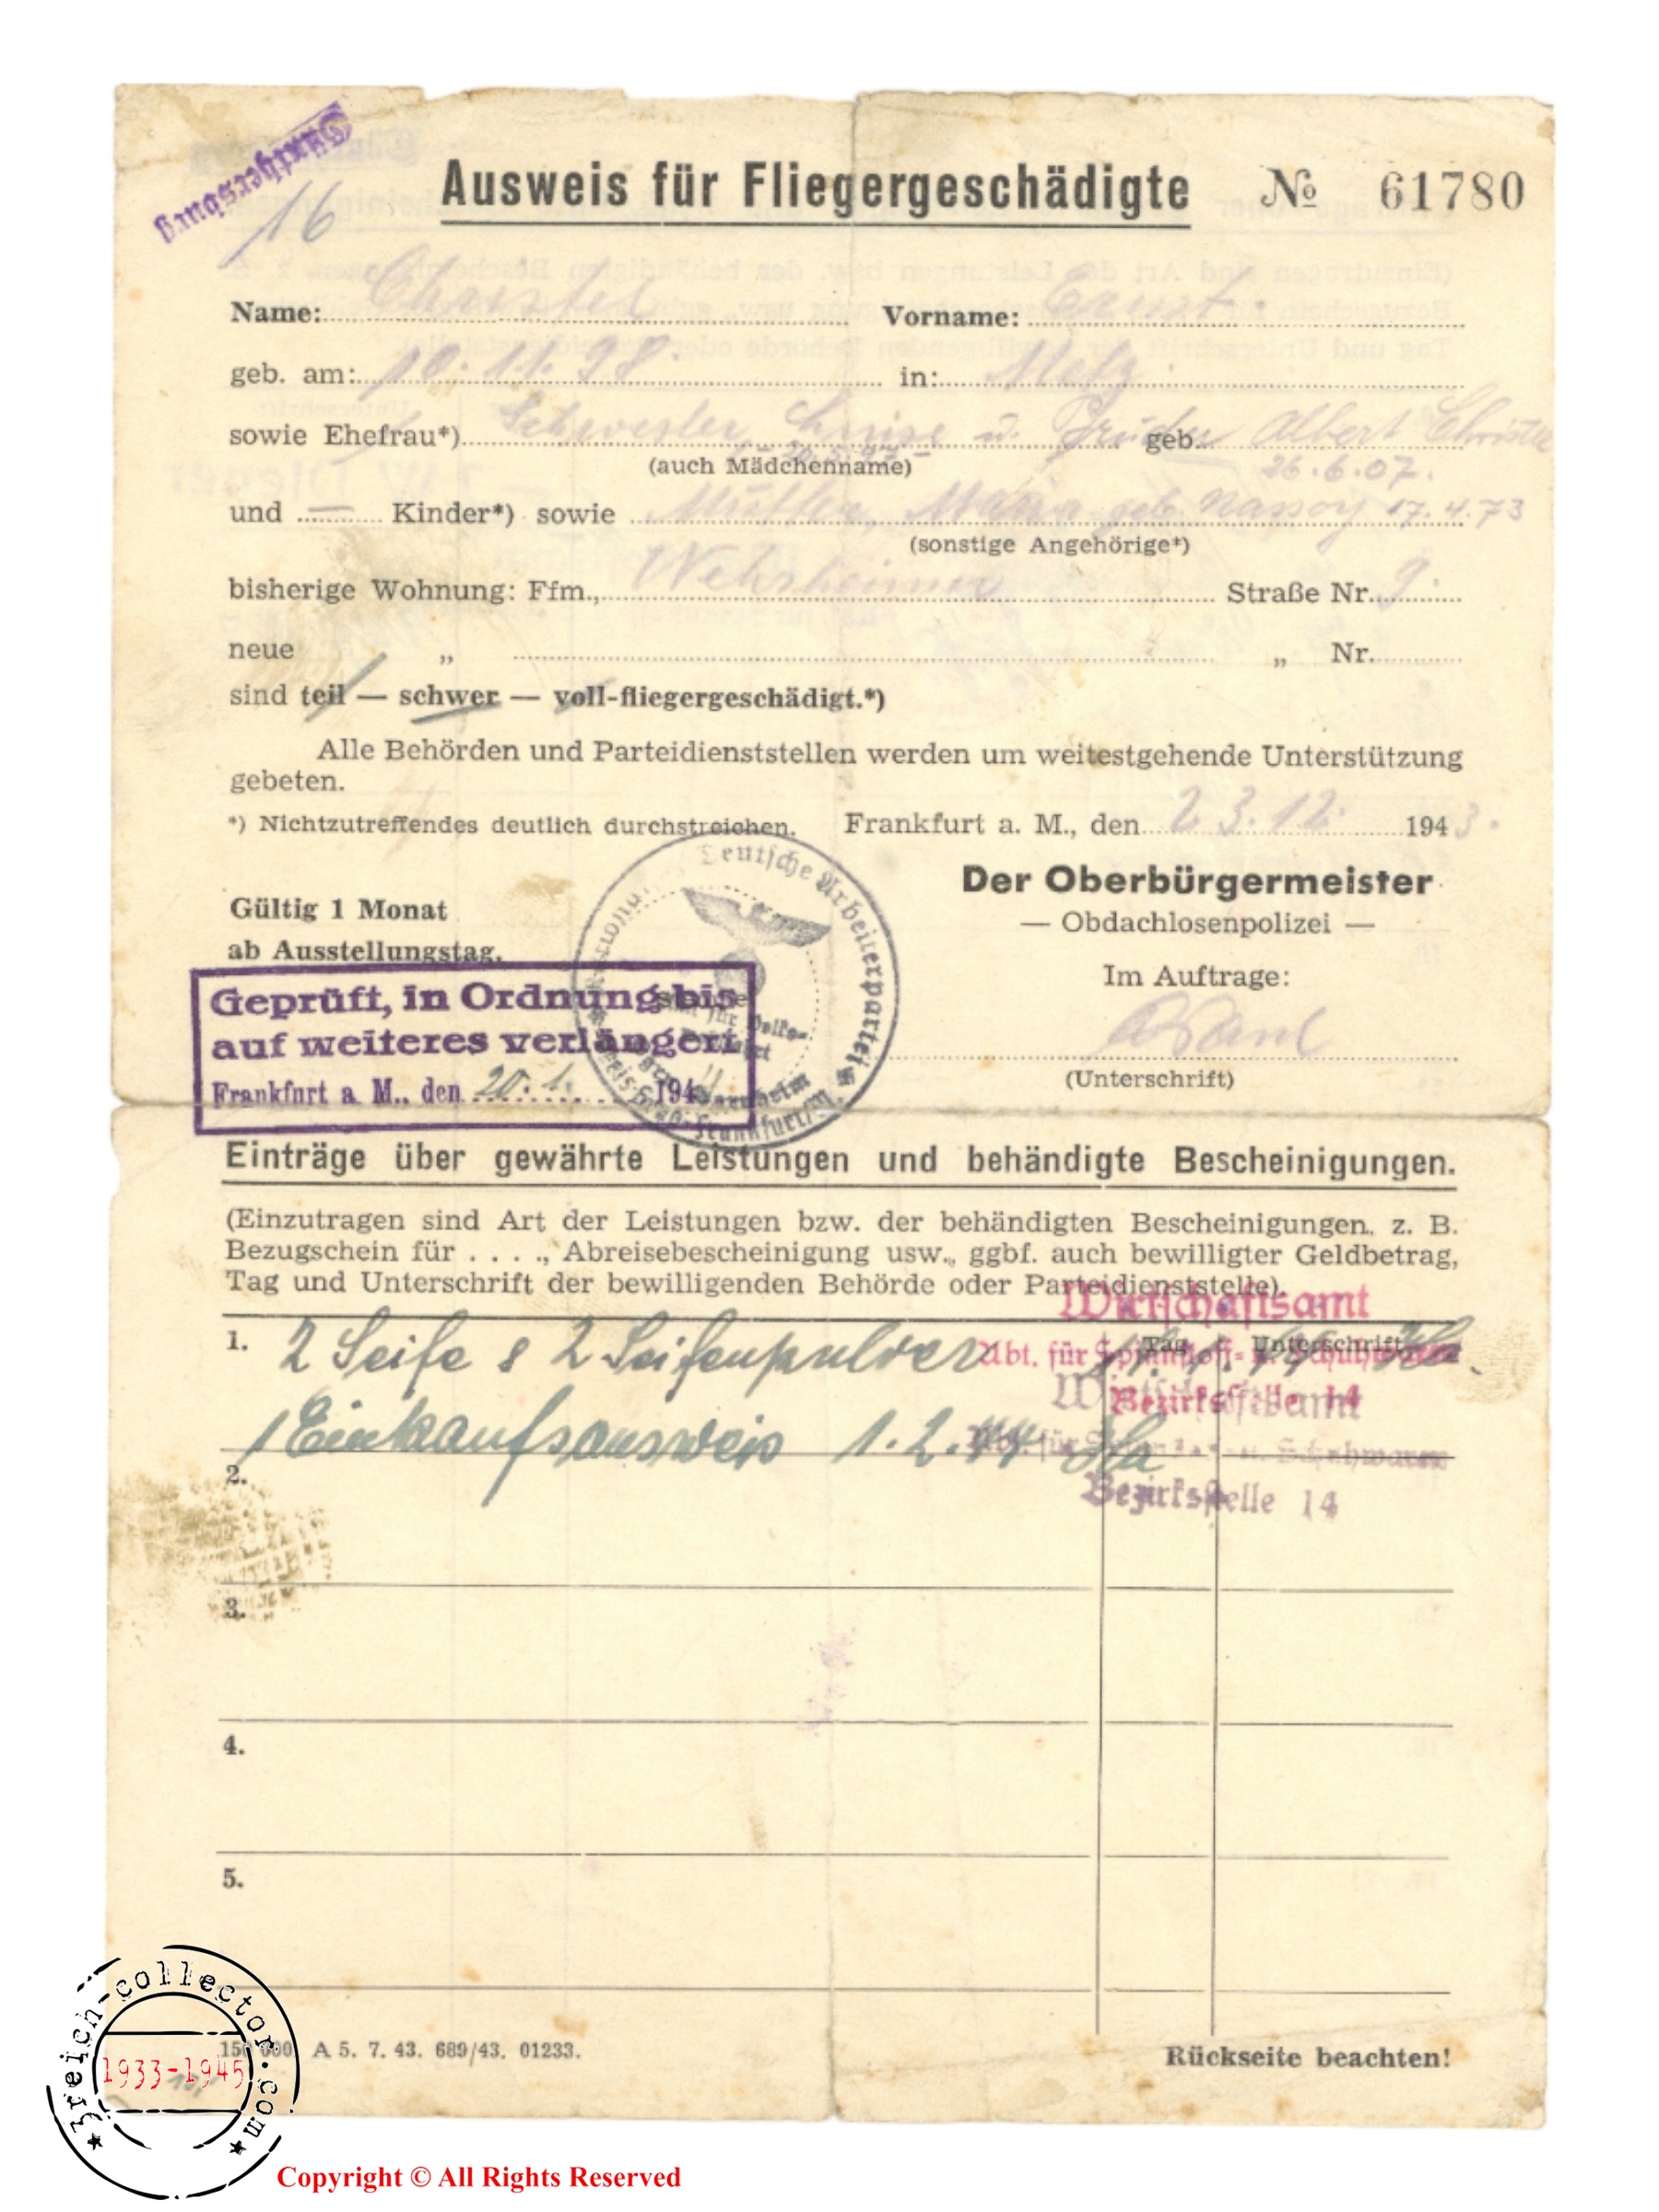 16
Ausweis für Fliegergeschädigte № 61780
Name: Christel Vorname: Ernst.
geb. am: 10. 11. 98 in: Metz
sowie Ehefrau*) Schwester, Luise u. Bruder geb. Albert Christel
(auch Mädchenname) 26.6.07.
und — Kinder*) sowie Mutter, Maria geb. Nassoy 17.4.73
(sonstige Angehörige*)
bisherige Wohnung: Ffm., Wehrheimer Straße Nr. 9.
neue „ „ Nr.
sind teil — schwer — voll-fliegergeschädigt.*)
Alle Behörden und Parteidienststellen werden um weitestgehende Unterstützung
gebeten.
*) Nichtzutreffendes deutlich durchstreichen. Frankfurt a. M., den 23.12. 1943.
Der Oberbürgermeister
— Obdachlosenpolizei —
Gültig 1 Monat
ab Ausstellungstag.
Im Auftrage:
(Unterschrift)
Geprüft, in Ordnung bis
auf weiteres verlängert
Frankfurt a. M., den 20. 1. 194
Deutsche Arbeiterpartei
Einträge über gewährte Leistungen und behändigte Bescheinigungen.
(Einzutragen sind Art der Leistungen bzw. der behändigten Bescheinigungen, z. B.
Bezugschein für . . . ., Abreisebescheinigung usw., ggbf. auch bewilligter Geldbetrag,
Tag und Unterschrift der bewilligenden Behörde oder Parteidienststelle).
Wirtschaftsamt
Tag Unterschrift
1. 2 Seife & 2 Seifenpulver
Abt. für Spinnstoff- u. Schuhwaren
Bezirksstelle 14
Wirtschaftsamt
1 Einkaufsausweis 1.2.44 Ha
Abt. für Spinnstoff- u. Schuhwaren
2.
Bezirksstelle 14
3.
4.
5.
150 000 A 5. 7. 43. 689/43. 01233.
Rückseite beachten!
3reich-collector.com
1933-1945
Copyright © All Rights Reserved